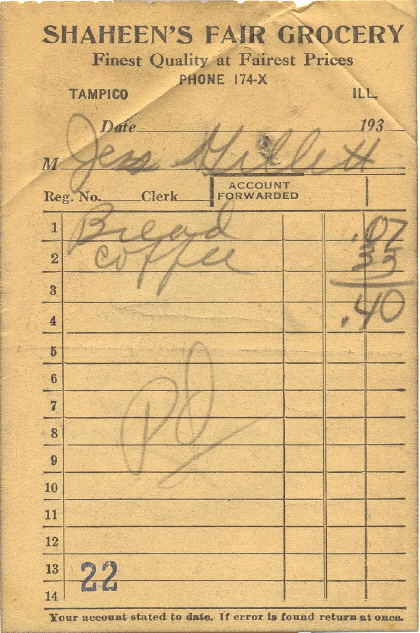 SHAHEEN'S FAIR GROCERY
Finest Quality at Fairest Prices
PHONE 174-X
TAMPICO ILL.
Date 193
M Jess Gillett
Reg. No. Clerk ACCOUNT FORWARDED
1 Bread .07
2 coffee 33
3
4 .40
5
6
7
8 Pd
9
10
11
12
13 22
14
Your account stated to date. If error is found return at once.